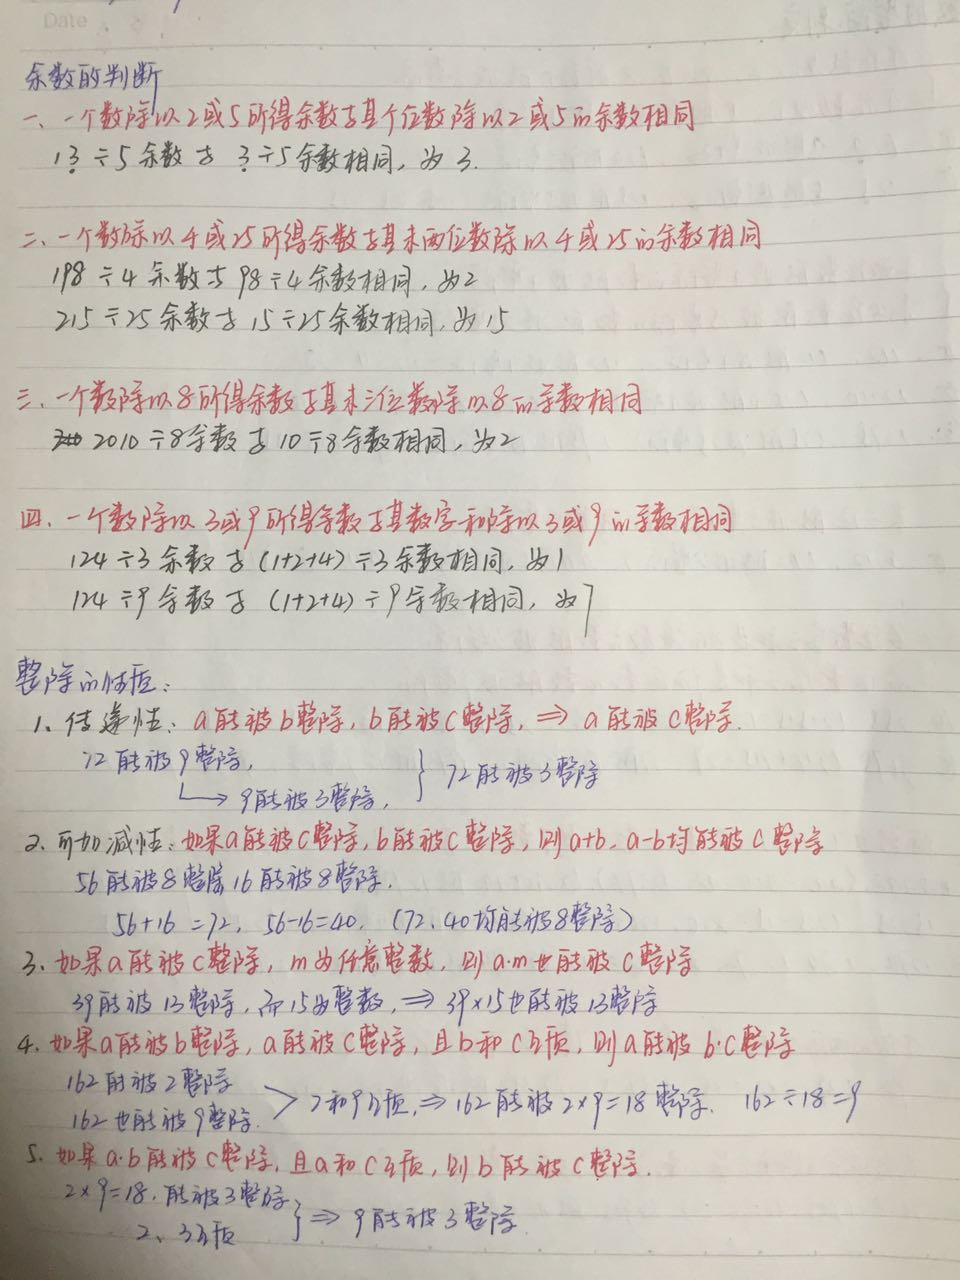 Date
余数的判断
一、一个数除以2或5所得余数与其个位数除以2或5的余数相同
13÷5余数与 3÷5余数相同,为3.
二、一个数除以4或25所得余数与其末两位数除以4或25的余数相同
198÷4余数与98÷4余数相同,为2
215÷25余数与15÷25余数相同,为15
三、一个数除以8所得余数与其末三位数除以8的余数相同
2010÷8余数与10÷8余数相同,为2
四、一个数除以3或9所得余数与其数字和除以3或9的余数相同
124÷3余数与(1+2+4)÷3余数相同,为1
124÷9余数与(1+2+4)÷9余数相同,为7
整除的性质:
1、传递性:a能被b整除,b能被c整除,⇒ a能被c整除.
72能被9整除,
9能被3整除,
72能被3整除
2、可加减性:如果a能被c整除,b能被c整除,则a+b、a-b均能被c整除
56能被8整除16能被8整除.
56+16=72, 56-16=40, (72、40均能被8整除)
3、如果a能被c整除,m为任意整数,则a·m也能被c整除
39能被13整除,而15为整数,⇒39×15也能被13整除
4、如果a能被b整除,a能被c整除,且b和c互质,则a能被b·c整除
162能被2整除
162也能被9整除.
2和9互质,⇒162能被2×9=18整除. 162÷18=9
5、如果a·b能被c整除,且a和c互质,则b能被c整除.
2×9=18,能被3整除
2、3互质
⇒ 9能被3整除.